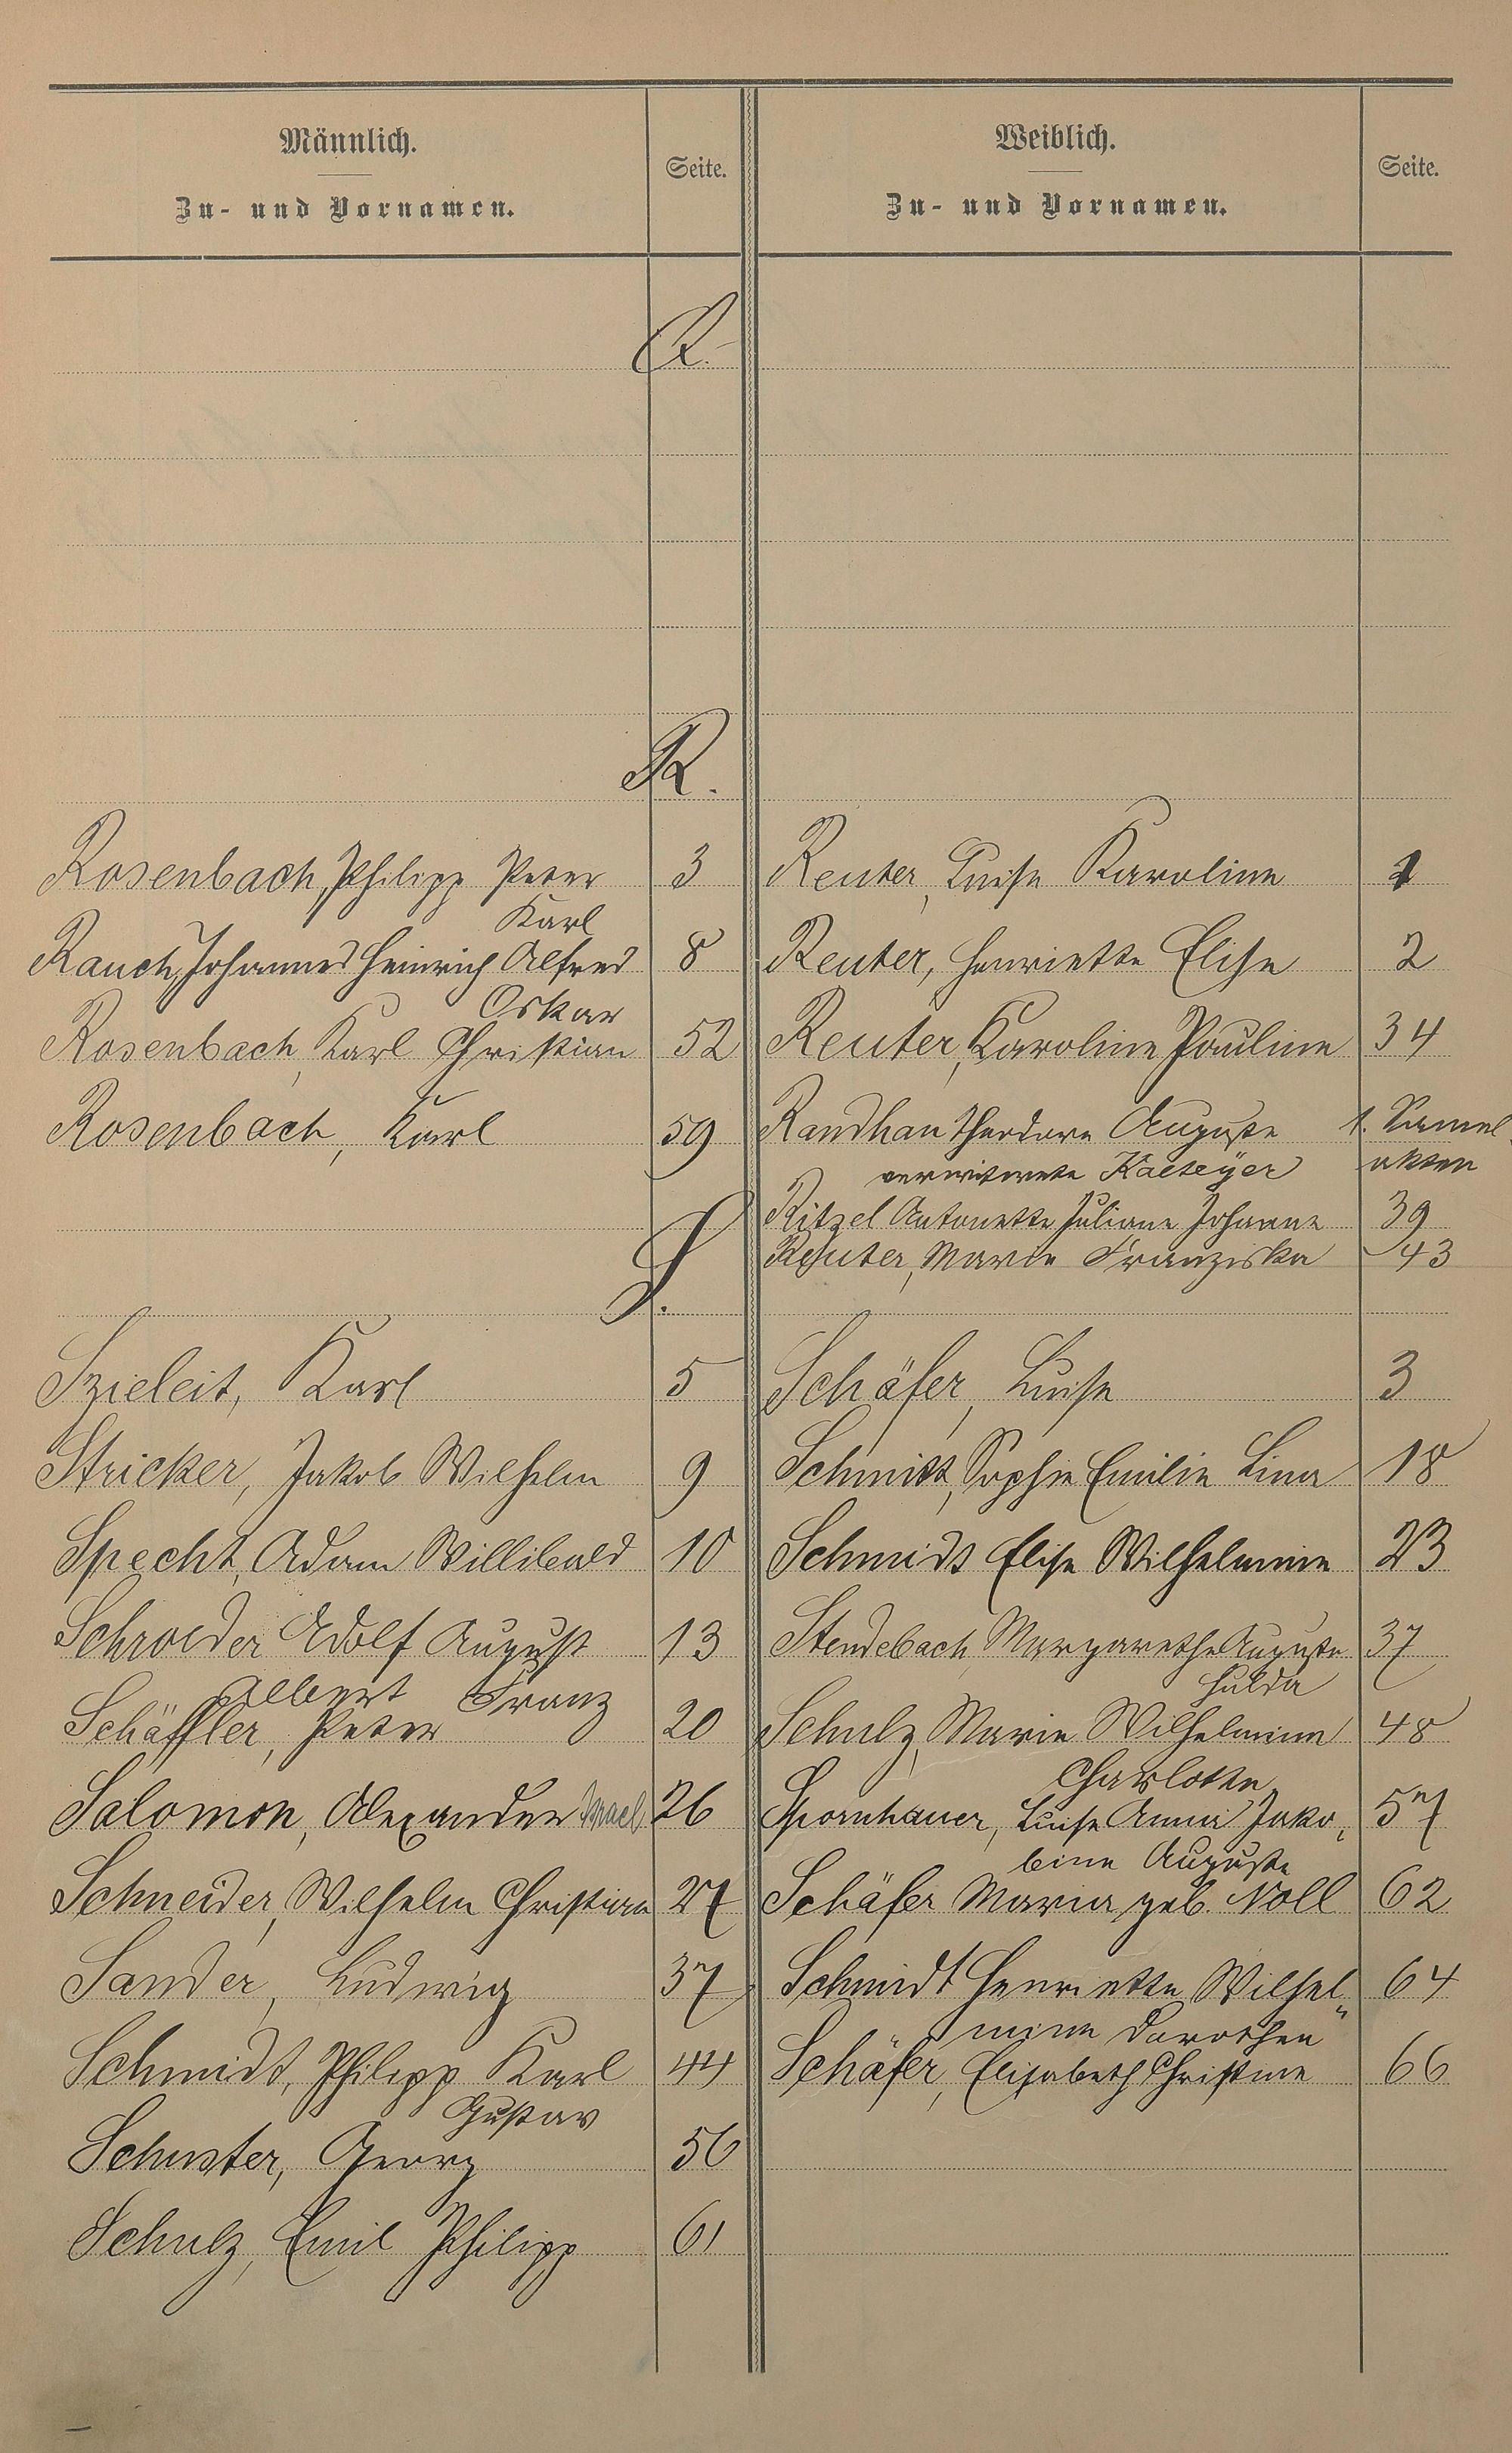 Männlich.
Zu- und Vornamen.
Seite.
Weiblich.
Zu- und Vornamen.
Seite.
Q.
R.
Rosenbach, Philipp Peter 3
Karl
Rauch, Johannes Heinrich Alfred 8
Oskar
Rosenbach, Karl Christian 52
Rosenbach, Karl 59
Reuter, Luise Karoline 1
Reuter, Henriette Elise 2
Reuter, Karoline Pauline 34
Randhan Theodore Auguste
verwitwete Kaeseyer akten
Ritzel Antonette Juliane Johanne 39
Reuter, Marie Franziska 43
S.
Szieleit, Karl 5
Stricker, Jakob Wilhelm 9
Specht, Adam Willibald 10
Schroeder Adolf August 13
Albert Franz
Schäffler, Peter 20
Salomon, Alexander Israel 26
Schneider, Wilhelm Christian 27
Sander, Ludwig 37
Schmidt, Philipp Karl 44
Gustav
Schuster, Georg 56
Schulz, Emil Philipp 61
Schäfer, Luise 3
Schmitt, Sophie Emilie Lina 18
Schmidt Elise Wilhelmine 23
Stendebach, Margarethe Auguste 37
Hulda
Schulz, Marie Wilhelmine 48
Charlotte
Spornhauer, Luise Anna Jako- 57
bine Auguste
Schäfer Maria geb. Noll 62
Schmidt Henriette Wilhel- 64
mine Dorothea
Schäfer, Elisabeth Christine 66